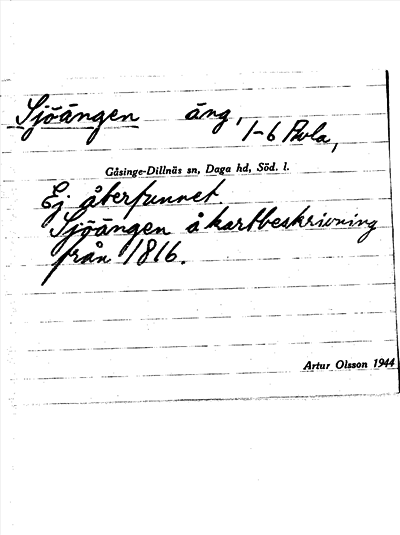 Sjöängen äng,
1-6 Avla,
Gåsinge-Dillnäs sn, Daga hd, Söd. l.
Ej återfunnet.
Sjöängen å kartbeskrivning
från 1816.
Artur Olsson 1944